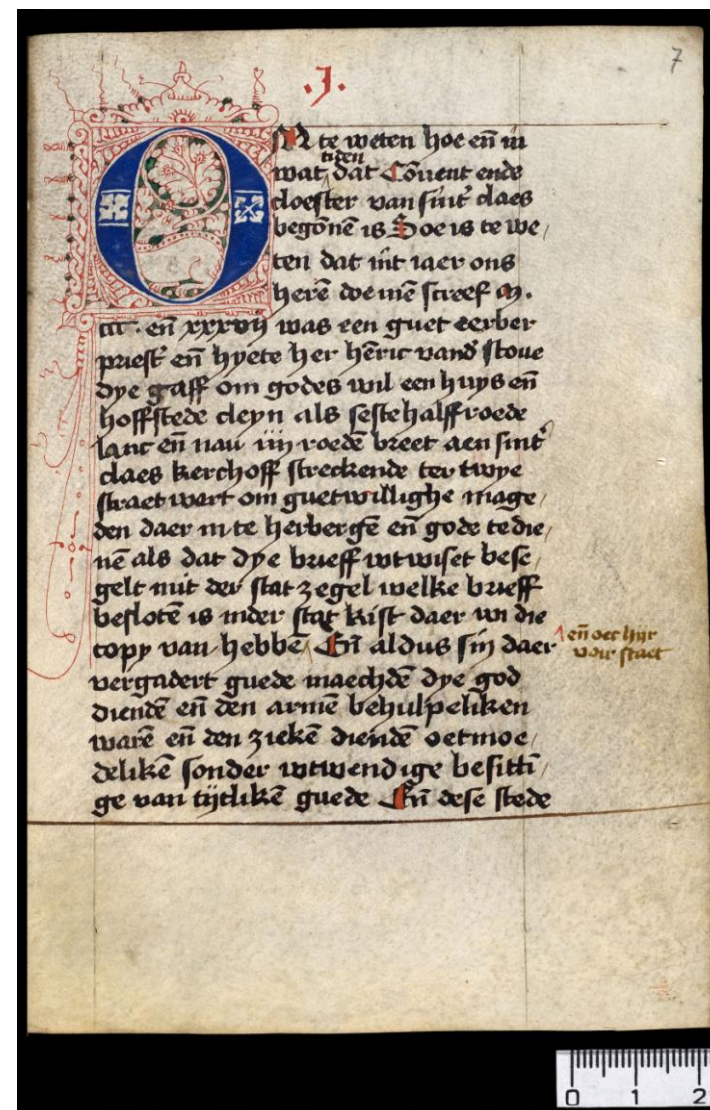 .J.
7
OM te weten hoe en̄ in
wat tiden dat Cōuent ende
cloester van sint claes
begōnē is Soe is te we/
ten dat int iaer ons
herē doemē screef M.
en̄ xxxvij was een guet eerber
priest̄ en̄ hyete her hēric vand̄ stoue
dye gaff om godes wil een huys en̄
hoffstede cleyn als sestehalff roede
lanc en̄ nau iiij roedē breet aen sint̄
claes kerchoff streckende ter twye
straet wert om guetwillighe mage/
den daer in te herbergē en̄ gode te die/
nē als dat dye brieff wtwiset bese/
gelt mit der stat zegel welke brieff
beslotē is inder stat kist daer wi die
copy van hebbē En̄ aldus sijn daer
en̄ oec hijr
voir staet
vergadert guede maechdē dye god
diendē en̄ den armē behulpeliken
warē en̄ den ziekē diendē oetmoe/
delikē sonder wtwendige besitti/
ge van tijtlikē guede En̄ dese stede
0 1 2